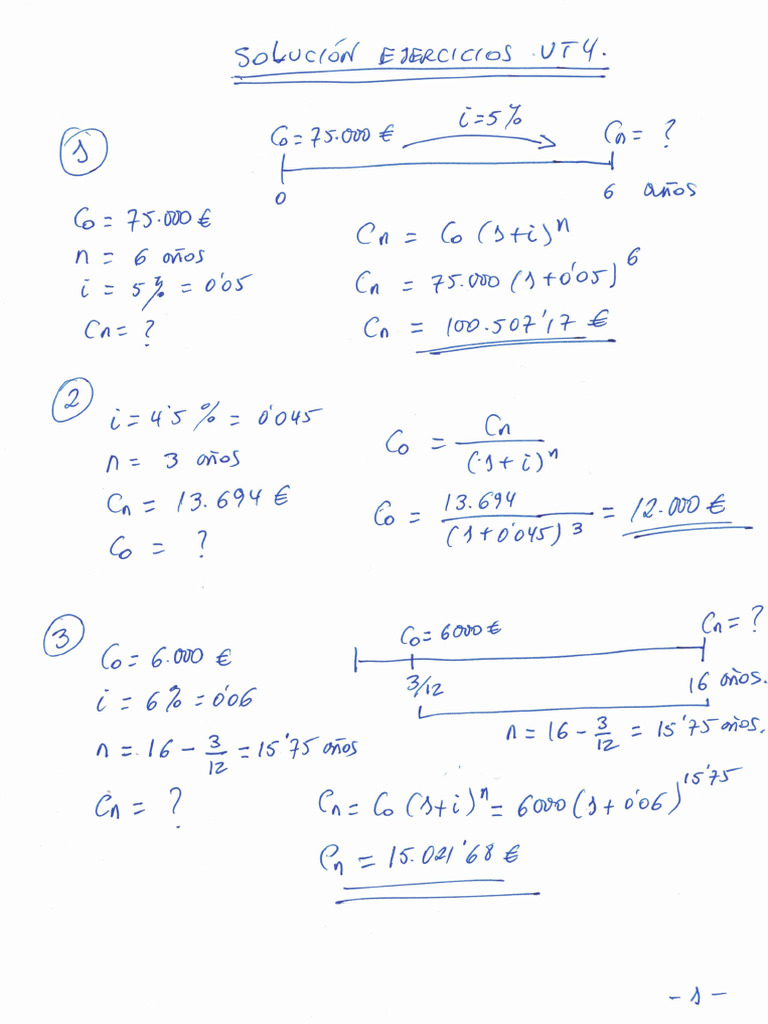 SOLUCIÓN EJERCICIOS UT4.
1
C0 = 75.000 € i = 5% Cn = ?
0 6 años
C0 = 75.000 €
n = 6 años
i = 5% = 0'05
Cn = ?
Cn = C0 (1+i)^n
Cn = 75.000 (1+0'05)^6
Cn = 100.507'17 €
2
i = 4'5 % = 0'045
n = 3 años
Cn = 13.694 €
C0 = ?
C0 = Cn / (1+i)^n
C0 = 13.694 / (1+0'045)^3 = 12.000 €
3
C0 = 6.000 €
i = 6% = 0'06
n = 16 - 3/12 = 15'75 años
Cn = ?
C0 = 6000 € Cn = ?
3/12 16 años.
n = 16 - 3/12 = 15'75 años.
Cn = C0 (1+i)^n = 6000 (1+0'06)^15'75
Cn = 15.021'68 €
- 1 -